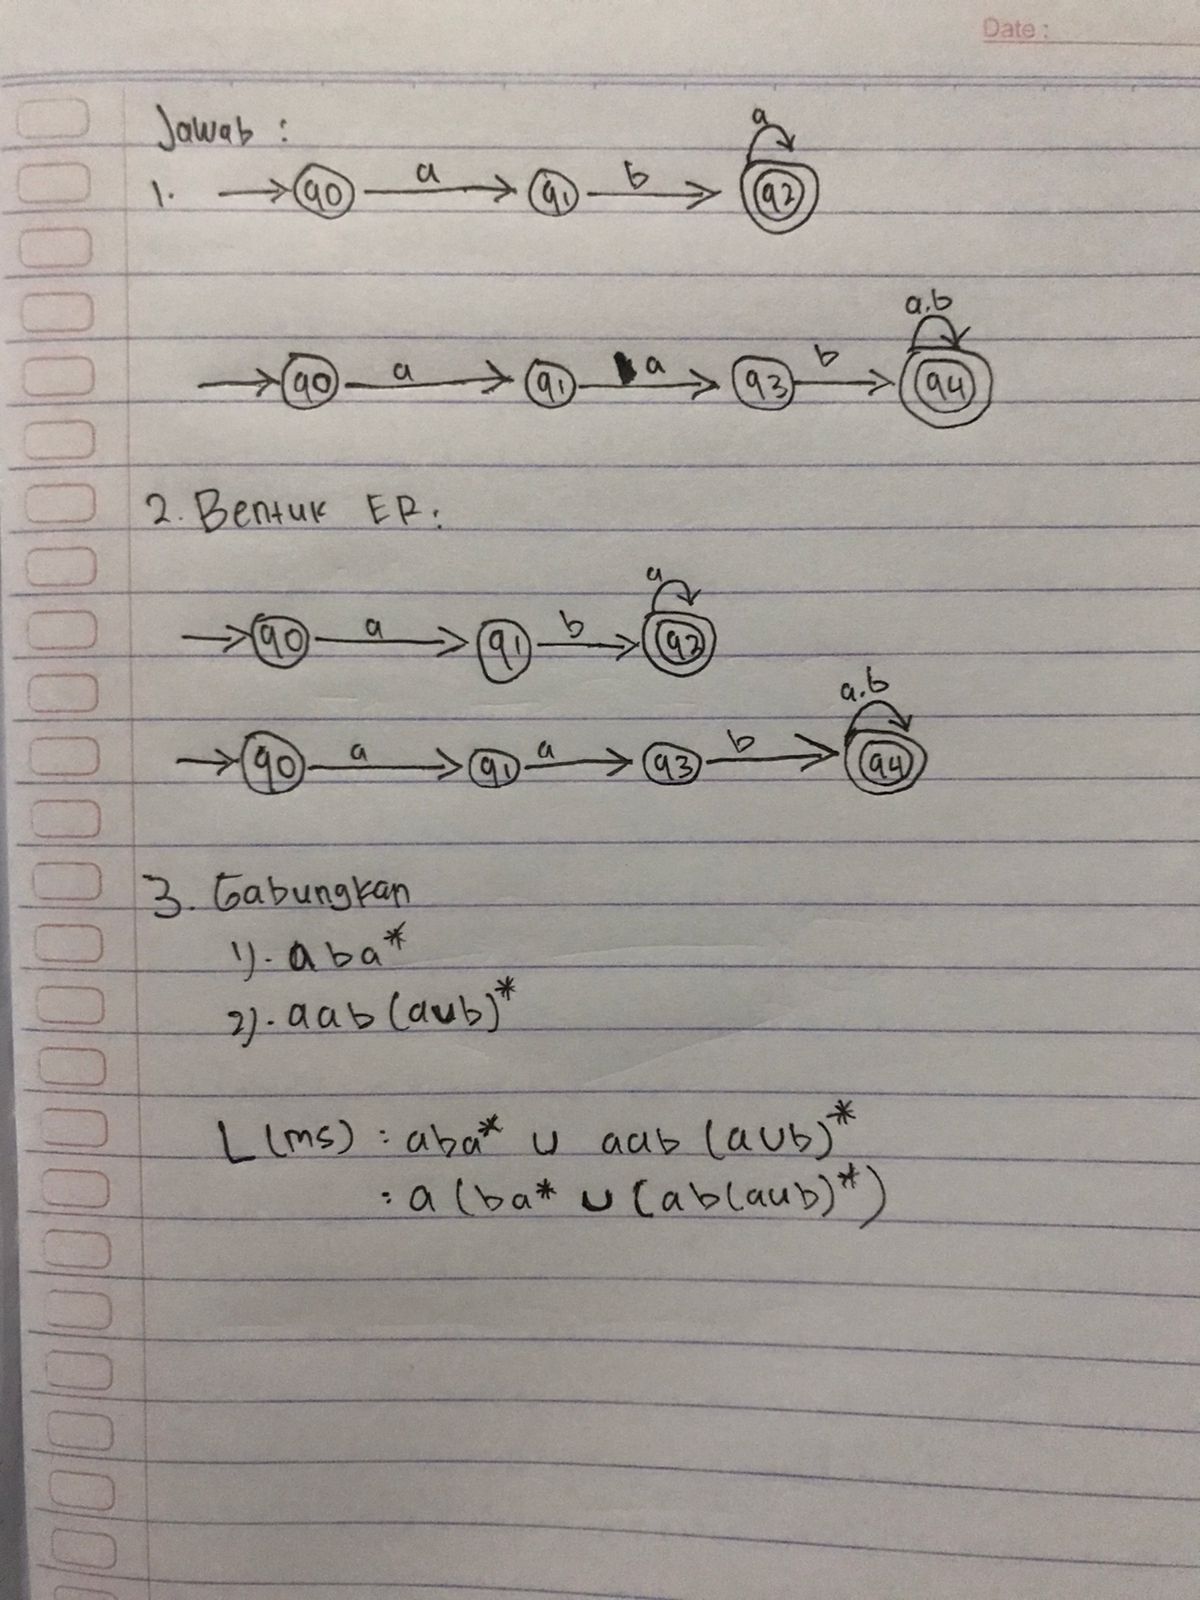 Date :
Jawab :
1. q0 a q1 b q2 a
q0 a q1 a q3 b q4 a.b
2. Bentuk ER :
q0 a q1 b q2 a
q0 a q1 a q3 b q4 a.b
3. Gabungkan
1). aba*
2). aab (a∪b)*
L (ms) : aba* ∪ aab (a∪b)*
: a (ba* ∪ (ab(a∪b)*)